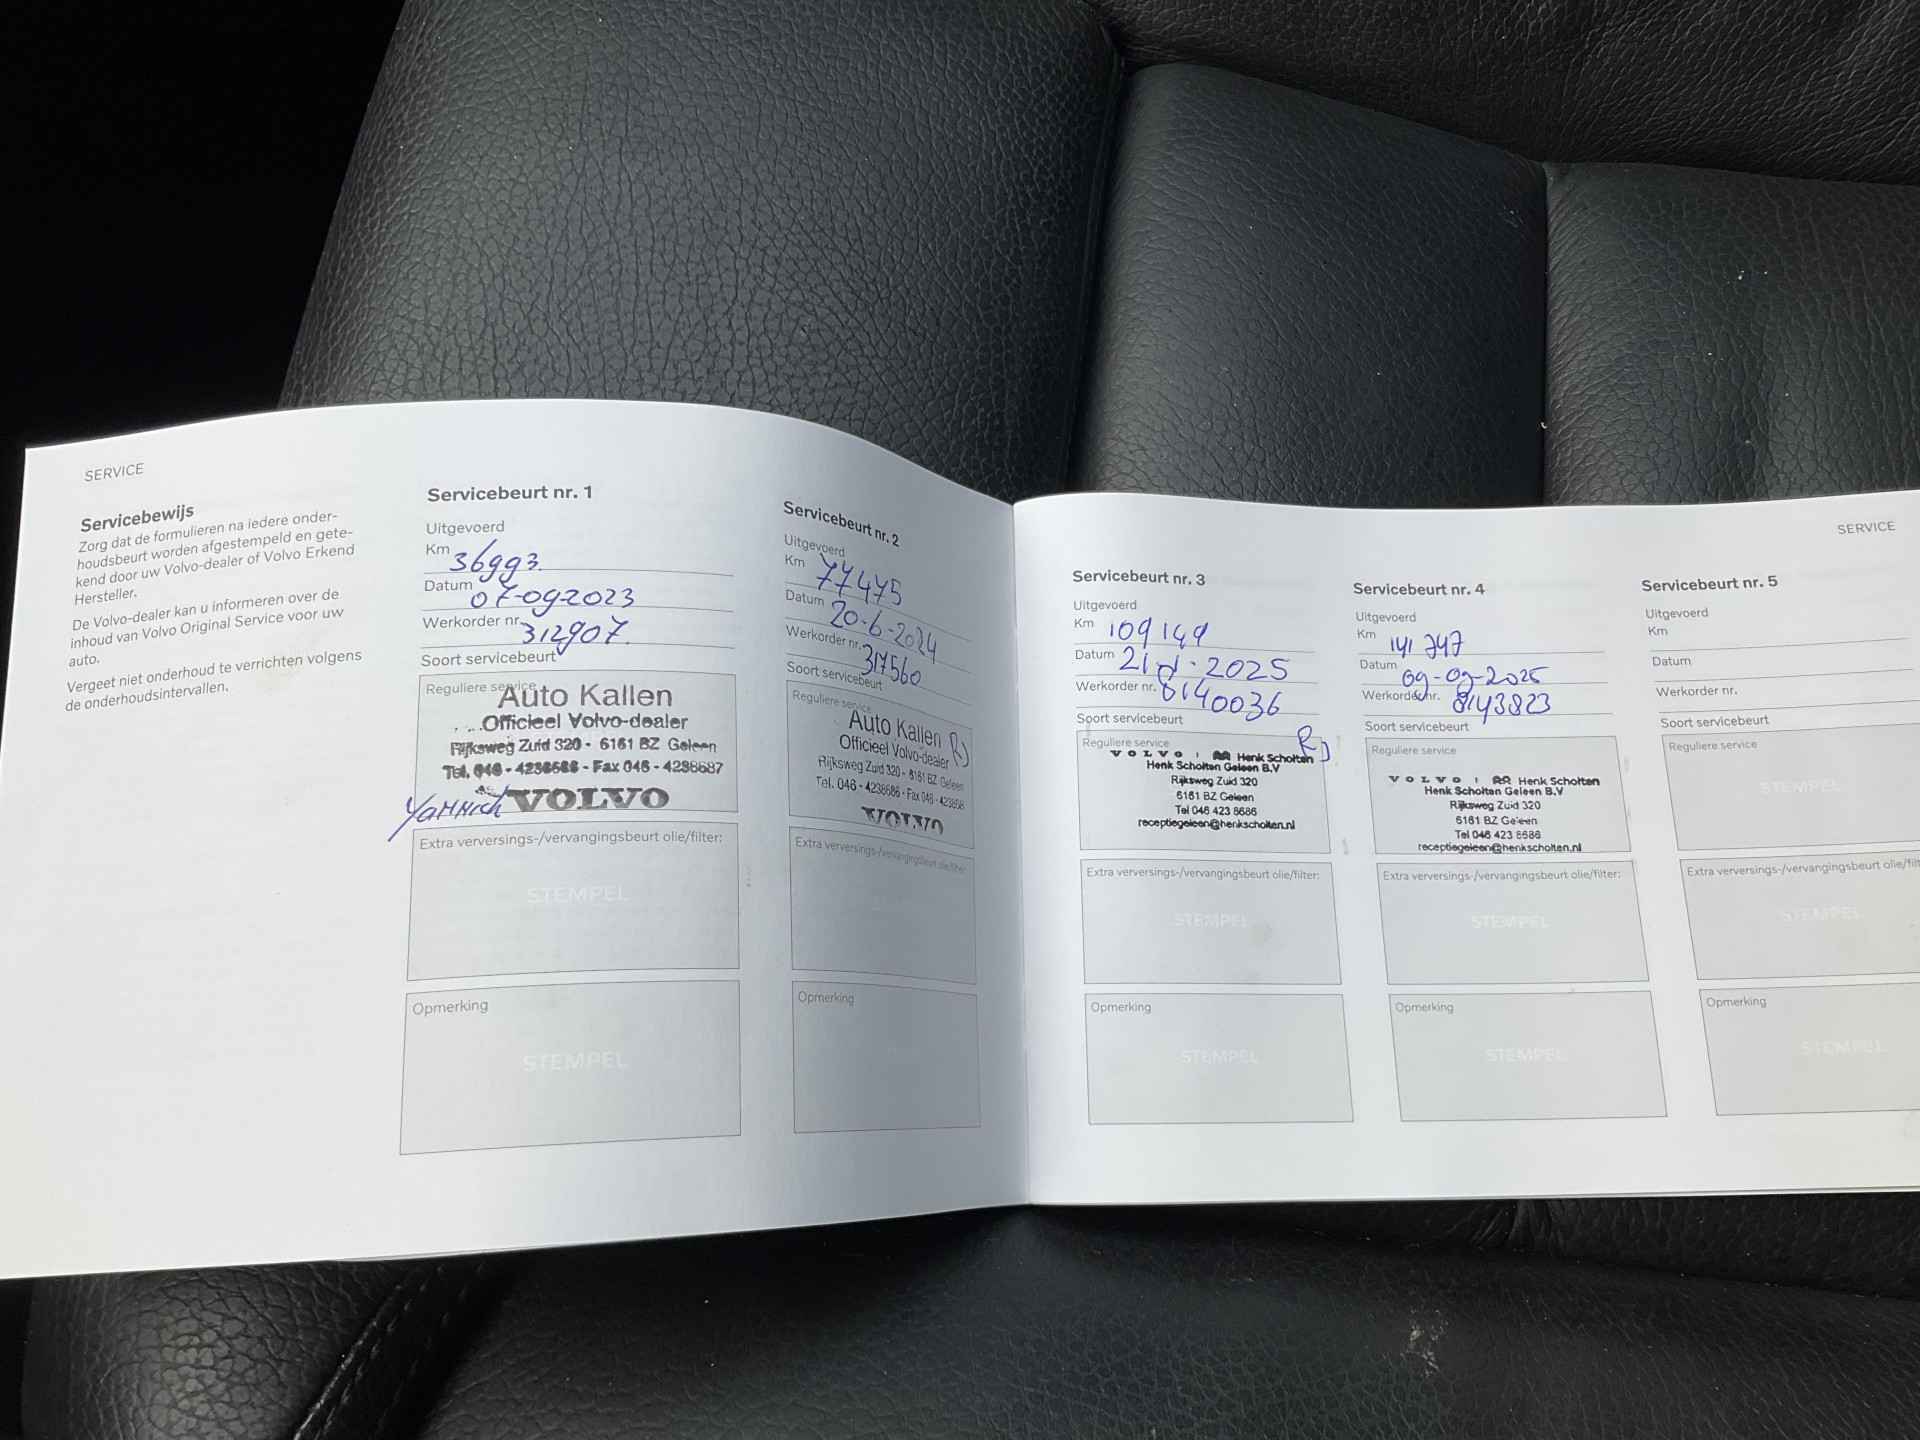 SERVICE
Servicebewijs
Zorg dat de formulieren na iedere onder-
houdsbeurt worden afgestempeld en gete-
kend door uw Volvo-dealer of Volvo Erkend
Hersteller.
De Volvo-dealer kan u informeren over de
inhoud van Volvo Original Service voor uw
auto.
Vergeet niet onderhoud te verrichten volgens
de onderhoudsintervallen.
Servicebeurt nr. 1
Uitgevoerd
Km 36993
Datum 07-09-2023
Werkorder nr. 312907
Soort servicebeurt
Reguliere service
Auto Kallen
Officieel Volvo-dealer
Rijksweg Zuid 320 - 6161 BZ Geleen
Tel. 046 - 4238686 - Fax 046 - 4238687
VOLVO
Yannick
Extra verversings-/vervangingsbeurt olie/filter:
STEMPEL
Opmerking
STEMPEL
Servicebeurt nr. 2
Uitgevoerd
Km 77475
Datum 20-6-2024
Werkorder nr. 317560
Soort servicebeurt
Reguliere service
Auto Kallen
Officieel Volvo-dealer
Rijksweg Zuid 320 - 6161 BZ Geleen
Tel. 046 - 4238686 - Fax 046 -
VOLVO
Extra verversings-/vervangingsbeurt olie/filter:
Opmerking
SERVICE
Servicebeurt nr. 3
Uitgevoerd
Km 109149
Datum 21-1-2025
Werkorder nr. 8140036
Soort servicebeurt
Reguliere service
VOLVO Henk Scholten
Henk Scholten Geleen B.V
Rijksweg Zuid 320
6161 BZ Geleen
Tel 046 423 8686
receptiegeleen@henkscholten.nl
Extra verversings-/vervangingsbeurt olie/filter:
STEMPEL
Opmerking
STEMPEL
Servicebeurt nr. 4
Uitgevoerd
Km 141747
Datum 09-09-2025
Werkorder nr. 8143823
Soort servicebeurt
Reguliere service
VOLVO Henk Scholten
Henk Scholten Geleen B.V
Rijksweg Zuid 320
6161 BZ Geleen
Tel 046 423 8686
receptiegeleen@henkscholten.nl
Extra verversings-/vervangingsbeurt olie/filter:
STEMPEL
Opmerking
STEMPEL
Servicebeurt nr. 5
Uitgevoerd
Km
Datum
Werkorder nr.
Soort servicebeurt
Reguliere service
STEMPEL
Extra verversings-/vervangingsbeurt olie/filt
STEMPEL
Opmerking
STEMPEL